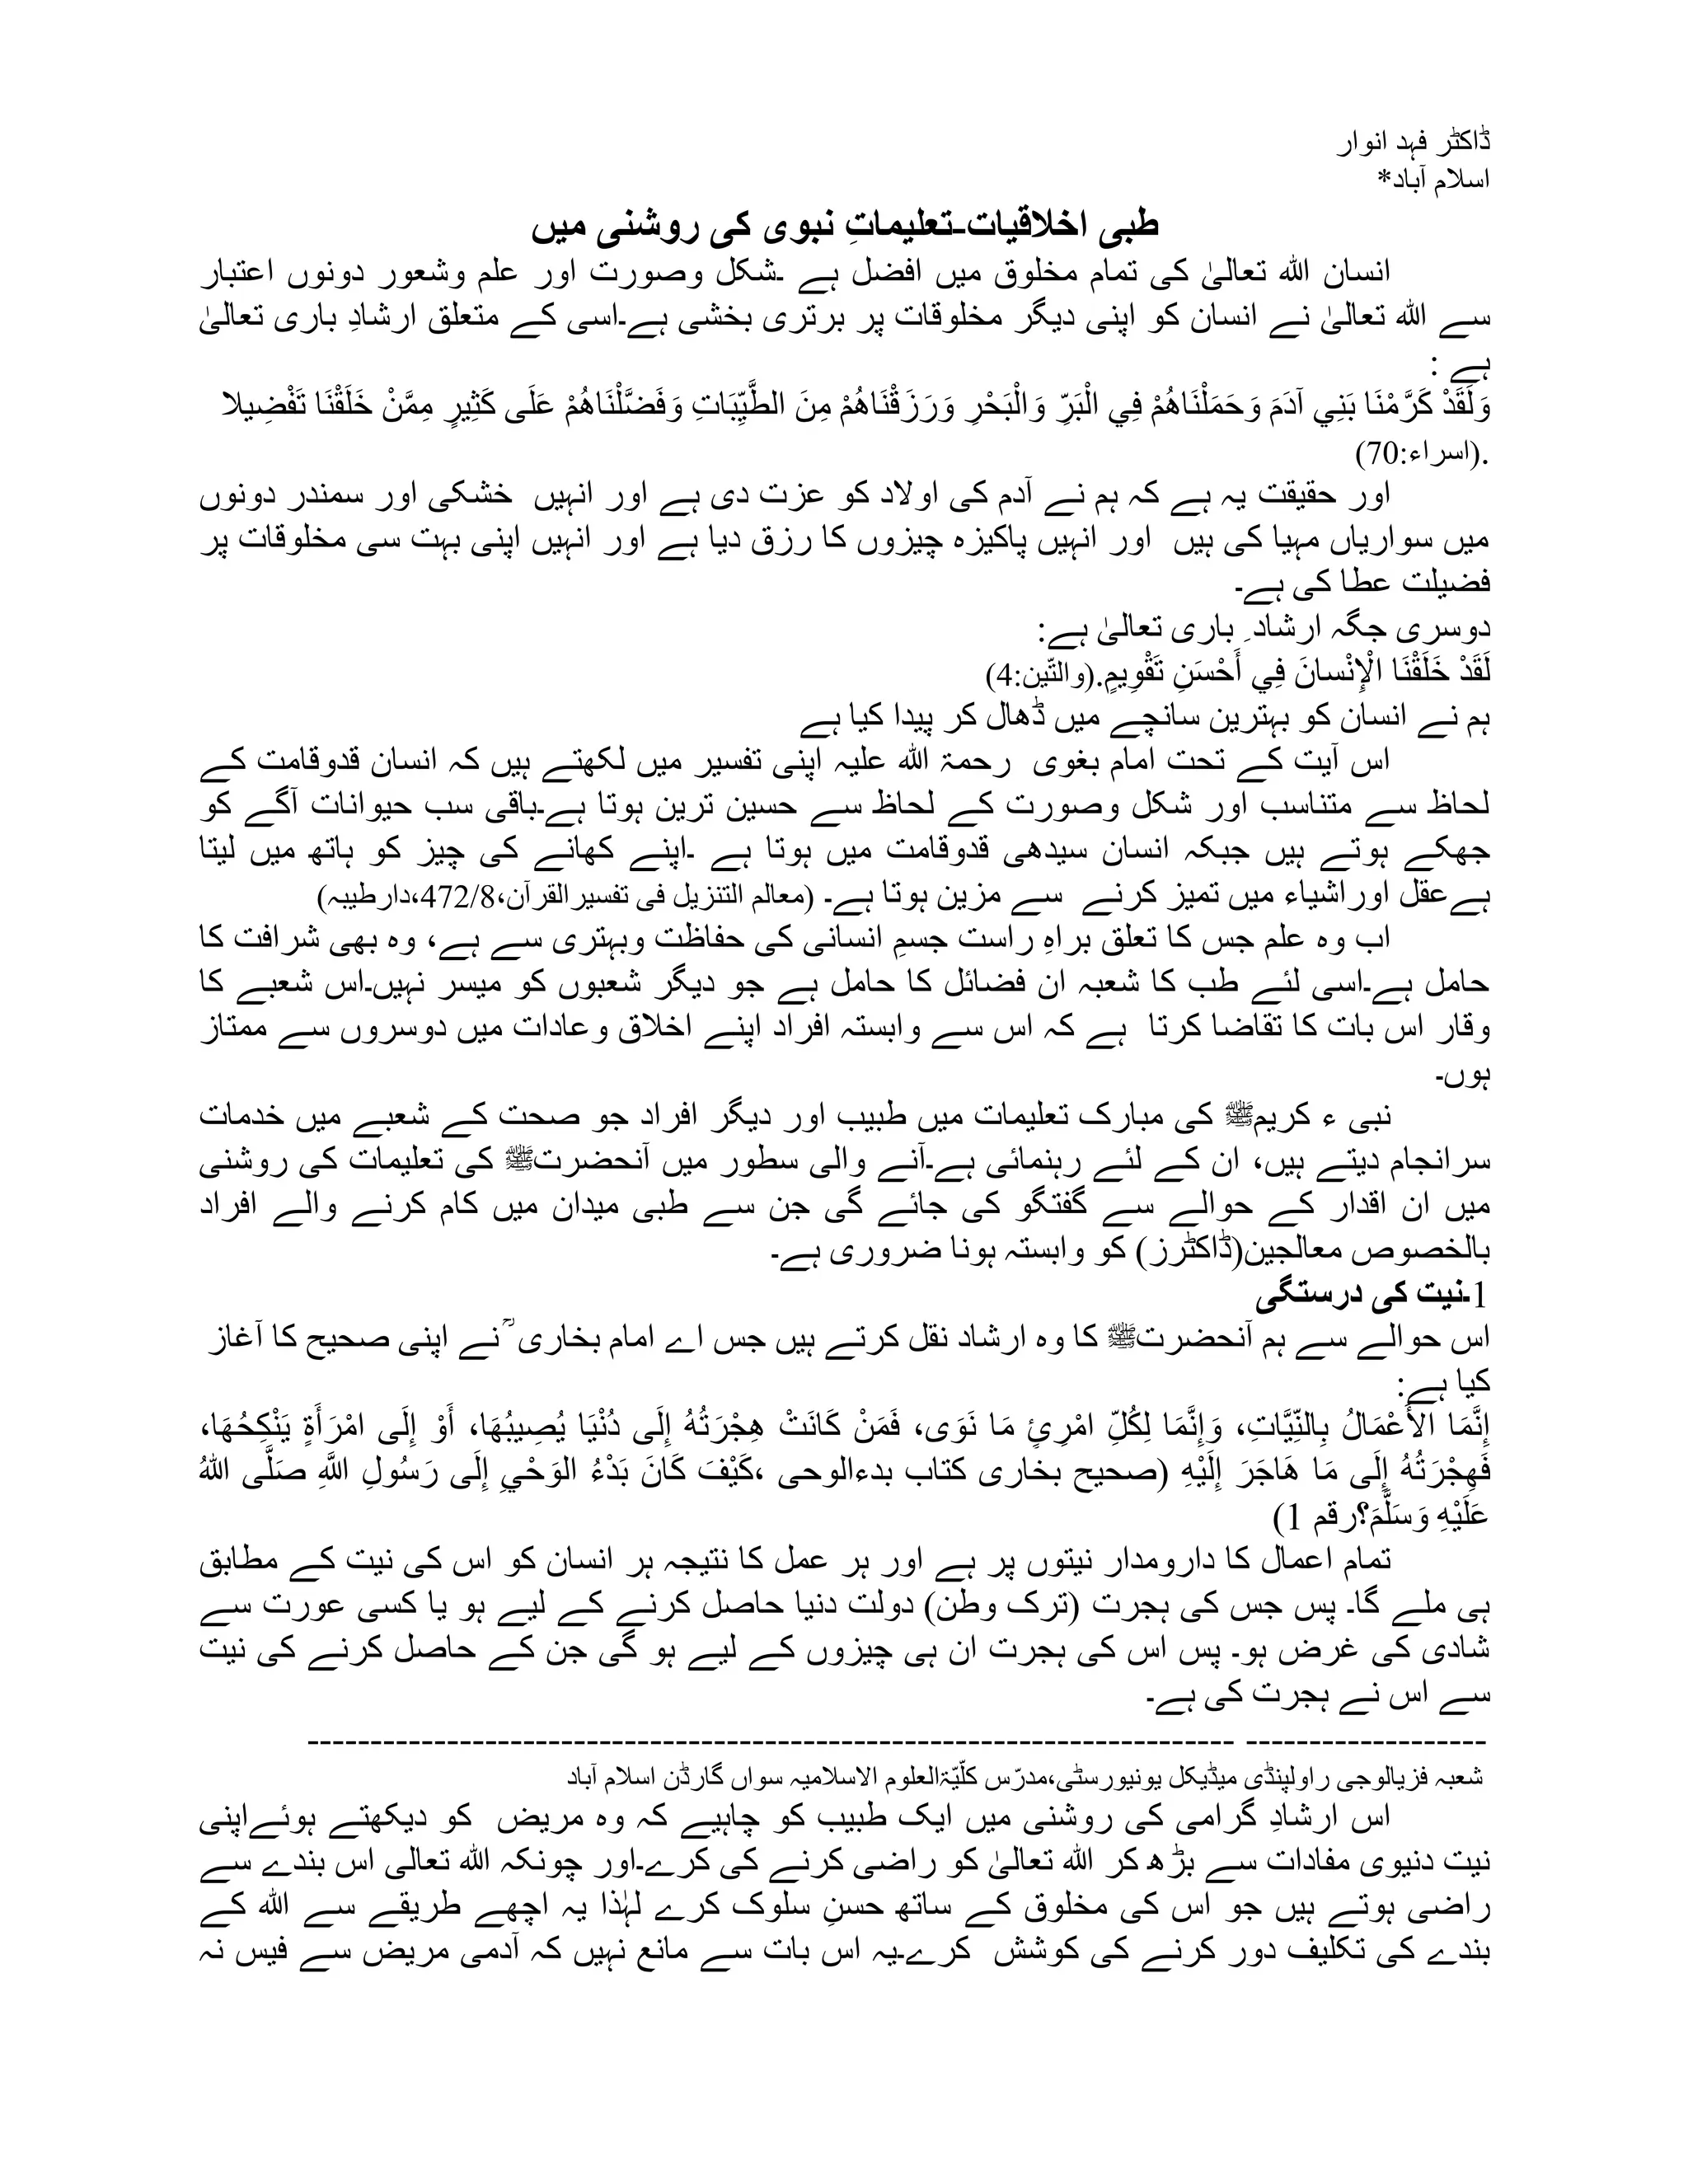 ڈاکٹر فہد انوار
اسلام آباد*
طبی اخلاقیات-تعلیماتِ نبوی کی روشنی میں
انسان اللہ تعالیٰ کی تمام مخلوق میں افضل ہے ۔شکل وصورت اور علم وشعور دونوں اعتبار
سے اللہ تعالیٰ نے انسان کو اپنی دیگر مخلوقات پر برتری بخشی ہے۔اسی کے متعلق ارشادِ باری تعالیٰ
ہے :
وَلَقَدْ كَرَّمْنَا بَنِي آدَمَ وَحَمَلْنَاهُمْ فِي الْبَرِّ وَالْبَحْرِ وَرَزَقْنَاهُمْ مِنَ الطَّيِّبَاتِ وَفَضَّلْنَاهُمْ عَلَى كَثِيرٍ مِمَّنْ خَلَقْنَا تَفْضِيلا
.(اسراء:70)
اور حقیقت یہ ہے کہ ہم نے آدم کی اولاد کو عزت دی ہے اور انہیں خشکی اور سمندر دونوں
میں سواریاں مہیا کی ہیں اور انہیں پاکیزہ چیزوں کا رزق دیا ہے اور انہیں اپنی بہت سی مخلوقات پر
فضیلت عطا کی ہے۔
دوسری جگہ ارشاد ِ باری تعالیٰ ہے:
لَقَدْ خَلَقْنَا الْإِنْسانَ فِي أَحْسَنِ تَقْوِيمٍ.(والتّین:4)
ہم نے انسان کو بہترین سانچے میں ڈھال کر پیدا کیا ہے
اس آیت کے تحت امام بغوی رحمۃ اللہ علیہ اپنی تفسیر میں لکھتے ہیں کہ انسان قدوقامت کے
لحاظ سے متناسب اور شکل وصورت کے لحاظ سے حسین ترین ہوتا ہے۔باقی سب حیوانات آگے کو
جھکے ہوتے ہیں جبکہ انسان سیدھی قدوقامت میں ہوتا ہے ۔اپنے کھانے کی چیز کو ہاتھ میں لیتا
ہےعقل اوراشیاء میں تمیز کرنے سے مزین ہوتا ہے۔ (معالم التنزیل فی تفسیرالقرآن،472/8،دارطیبہ)
اب وہ علم جس کا تعلق براہِ راست جسمِ انسانی کی حفاظت وبہتری سے ہے، وہ بھی شرافت کا
حامل ہے۔اسی لئے طب کا شعبہ ان فضائل کا حامل ہے جو دیگر شعبوں کو میسر نہیں۔اس شعبے کا
وقار اس بات کا تقاضا کرتا ہے کہ اس سے وابستہ افراد اپنے اخلاق وعادات میں دوسروں سے ممتاز
ہوں۔
نبی ء کریمﷺ کی مبارک تعلیمات میں طبیب اور دیگر افراد جو صحت کے شعبے میں خدمات
سرانجام دیتے ہیں، ان کے لئے رہنمائی ہے۔آنے والی سطور میں آنحضرتﷺ کی تعلیمات کی روشنی
میں ان اقدار کے حوالے سے گفتگو کی جائے گی جن سے طبی میدان میں کام کرنے والے افراد
بالخصوص معالجین(ڈاکٹرز) کو وابستہ ہونا ضروری ہے۔
1۔نیت کی درستگی
اس حوالے سے ہم آنحضرتﷺ کا وہ ارشاد نقل کرتے ہیں جس اے امام بخاری ؒ نے اپنی صحیح کا آغاز
کیا ہے:
إِنَّمَا الأَعْمَالُ بِالنِّيَّاتِ، وَإِنَّمَا لِكُلِّ امْرِئٍ مَا نَوَى، فَمَنْ كَانَتْ هِجْرَتُهُ إِلَى دُنْيَا يُصِيبُهَا، أَوْ إِلَى امْرَأَةٍ يَنْكِحُهَا،
فَهِجْرَتُهُ إِلَى مَا هَاجَرَ إِلَيْهِ (صحیح بخاری کتاب بدءالوحی ،كَيْفَ كَانَ بَدْءُ الوَحْيِ إِلَى رَسُولِ اللَّهِ صَلَّى اللهُ
عَلَيْهِ وَسَلَّمَ؟رقم 1)
تمام اعمال کا دارومدار نیتوں پر ہے اور ہر عمل کا نتیجہ ہر انسان کو اس کی نیت کے مطابق
ہی ملے گا۔ پس جس کی ہجرت (ترک وطن) دولت دنیا حاصل کرنے کے لیے ہو یا کسی عورت سے
شادی کی غرض ہو۔ پس اس کی ہجرت ان ہی چیزوں کے لیے ہو گی جن کے حاصل کرنے کی نیت
سے اس نے ہجرت کی ہے۔
------------------- -------------------------------------------------------------------------
شعبہ فزیالوجی راولپنڈی میڈیکل یونیورسٹی،مدرّس کلّیّۃالعلوم الاسلامیہ سواں گارڈن اسلام آباد
اس ارشادِ گرامی کی روشنی میں ایک طبیب کو چاہیے کہ وہ مریض کو دیکھتے ہوئےاپنی
نیت دنیوی مفادات سے بڑھ کر اللہ تعالیٰ کو راضی کرنے کی کرے۔اور چونکہ اللہ تعالی اس بندے سے
راضی ہوتے ہیں جو اس کی مخلوق کے ساتھ حسنِ سلوک کرے لہٰذا یہ اچھے طریقے سے اللہ کے
بندے کی تکلیف دور کرنے کی کوشش کرے۔یہ اس بات سے مانع نہیں کہ آدمی مریض سے فیس نہ